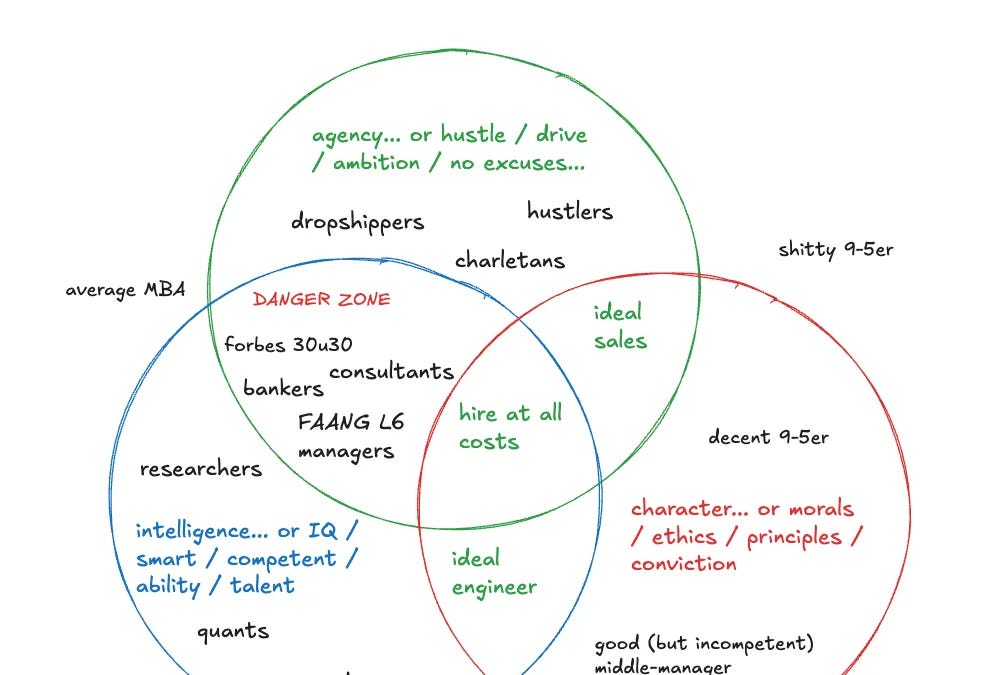 agency... or hustle / drive
/ ambition / no excuses...
dropshippers
hustlers
charletans
shitty 9-5er
average MBA
DANGER ZONE
ideal
sales
forbes 30u30
consultants
bankers
FAANG L6
managers
hire at all
costs
decent 9-5er
researchers
intelligence... or IQ /
smart / competent /
ability / talent
character... or morals
/ ethics / principles /
conviction
ideal
engineer
quants
good (but incompetent)
middle-manager